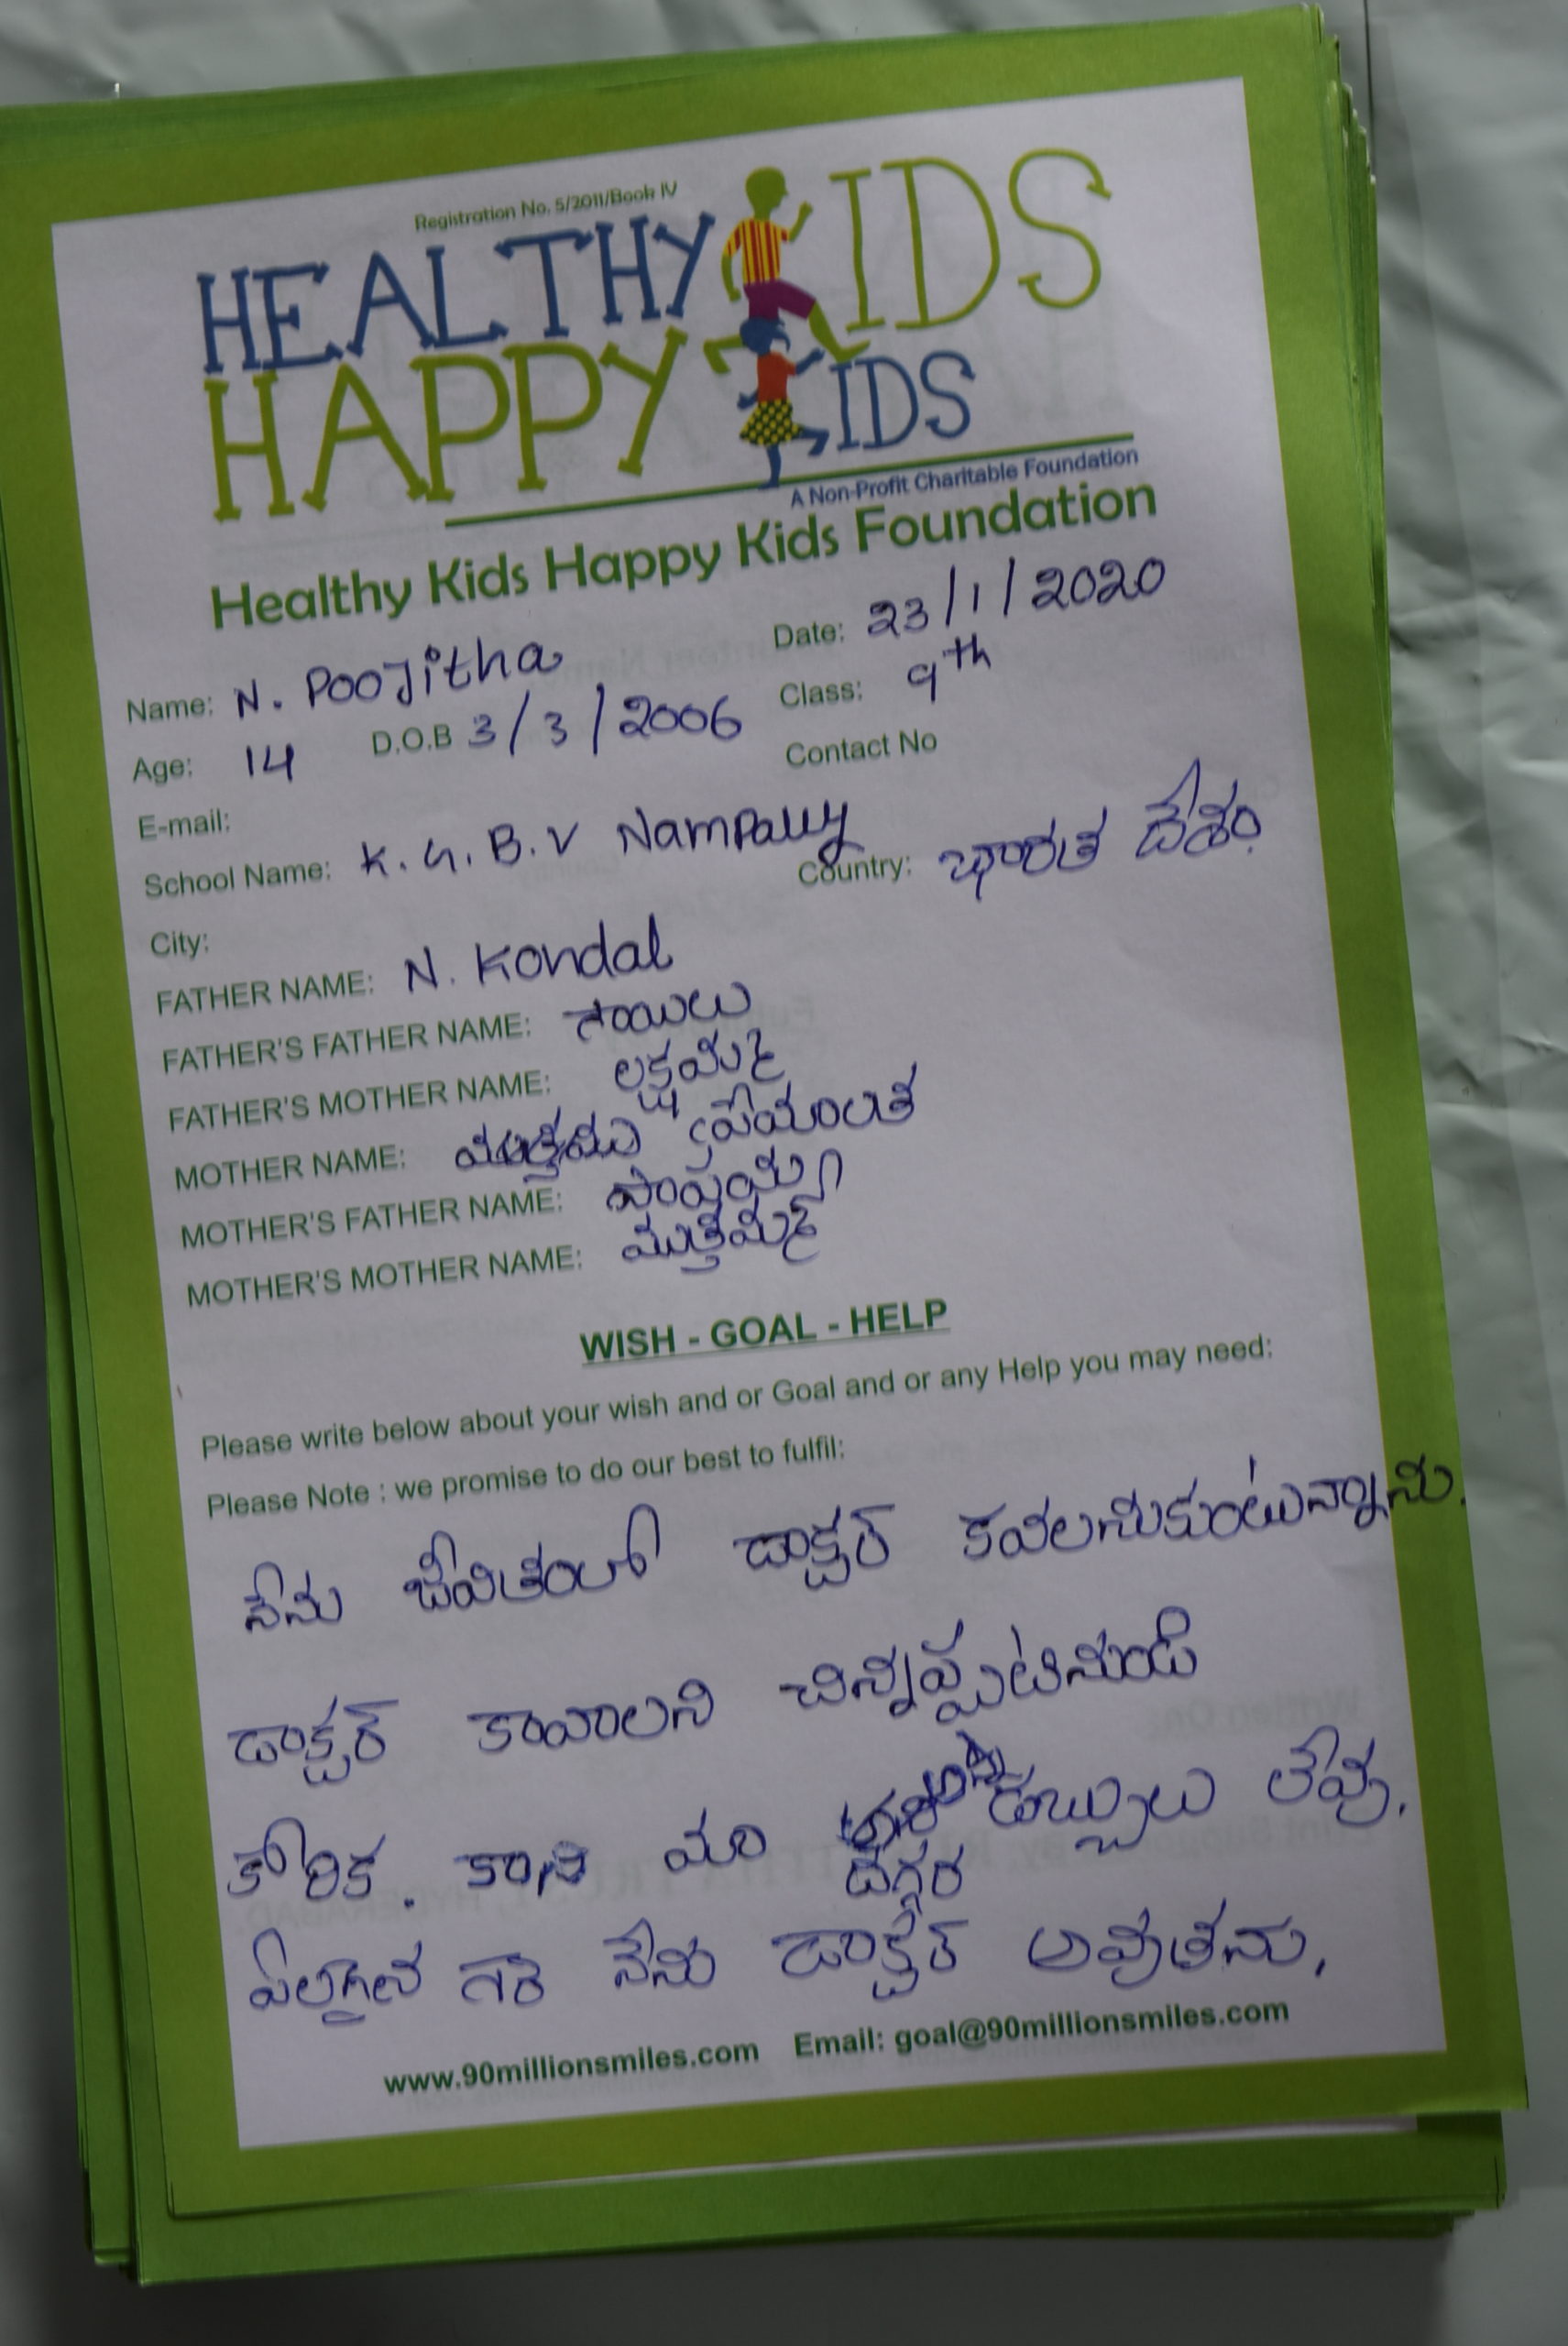 Registration No. 5/2011/Book IV
HEALTHY KIDS
HAPPY KIDS
A Non-Profit Charitable Foundation
Healthy Kids Happy Kids Foundation
Name: N. Poojitha Date: 23/1/2020
Age: 14 D.O.B 3/3/2006 Class: 9th
E-mail: Contact No
School Name: K.G.B.V Nampally
City: Country: భారత దేశం
FATHER NAME: N. Kondal
FATHER'S FATHER NAME: సాయిలు
FATHER'S MOTHER NAME: లక్ష్మమ్మ
MOTHER NAME: ప్రేమాలత
MOTHER'S FATHER NAME:
MOTHER'S MOTHER NAME: ముత్తమ్మ
WISH - GOAL - HELP
Please write below about your wish and or Goal and or any Help you may need:
Please Note : we promise to do our best to fulfil:
నేను జీవితంలో డాక్టర్ కవలనుకుంటున్నాను.
డాక్టర్ కావాలని చిన్నప్పటినుండి
కోరిక. కాని మా దగ్గర డబ్బులు లేవు.
నేను డాక్టర్ అవుతను.
www.90millionsmiles.com Email: goal@90millionsmiles.com